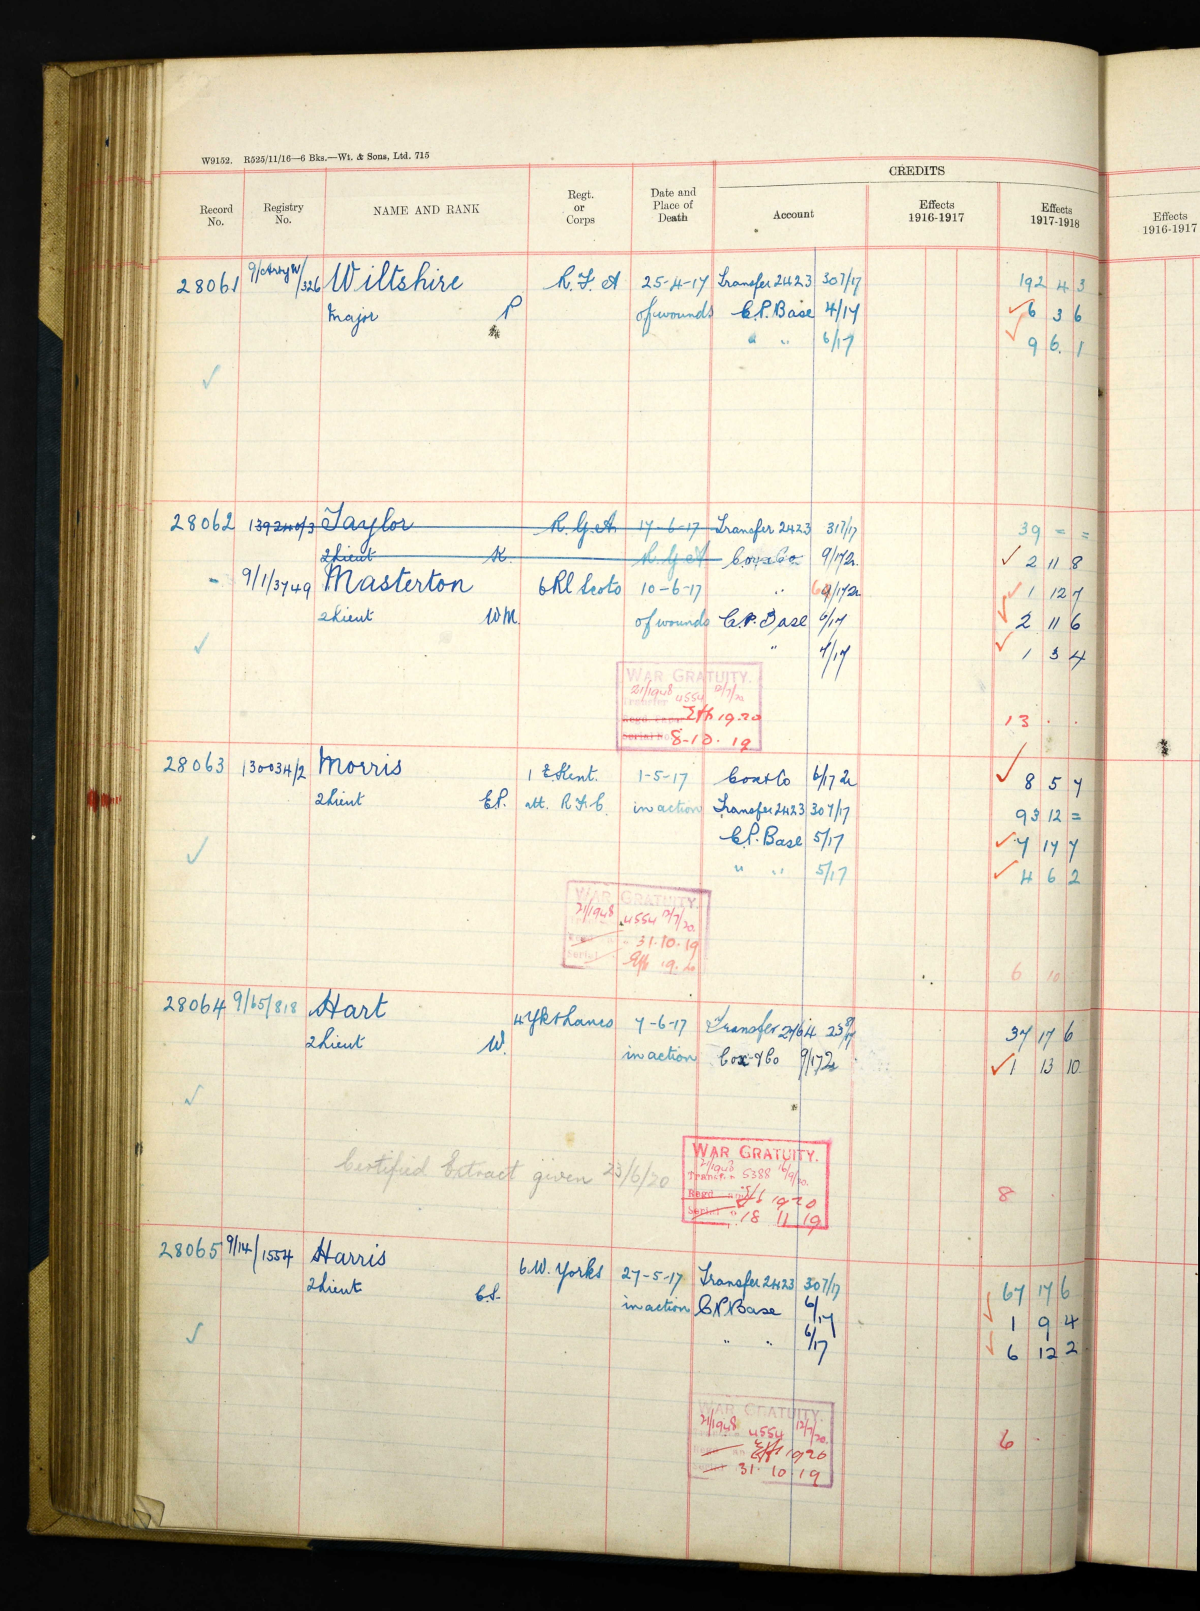 W9152. R525/11/16—6 Bks.—Wt. & Sons, Ltd. 715
CREDITS
Record No.
Registry No.
NAME AND RANK
Regt. or Corps
Date and Place of Death
Account
Effects 1916-1917
Effects 1917-1918
Effects 1916-1917
28061 9/Arty W/326 Wiltshire R.F.A 25-4-17 Transfer 2423 307/17 192 4 3
Major P of wounds C.P. Base 4/17 6 3 6
" " 6/17 9 6. 1
28062 139240/3 Taylor R.G.A. 17-6-17 Transfer 2423 317/17 39 = =
2Lieut K. R.G.A Cox & Co 9/17 2 11 8
9/1/3749 Masterton 6 Rl Scots 10-6-17 " 1 12 7
2Lieut W.M. of wounds C.P. Base 6/17 2 11 6
" 7/17 1 3 4
WAR GRATUITY.
21/1948 4554 12/7/20
19.20
8-10.19
13 . .
28063 130034/2 Morris 1 E. Kent. 1-5-17 Cox & Co 6/17 8 5 7
2Lieut E.P. att. R.F.C. in action Transfer 2423 307/17 93 12 =
C.P. Base 5/17 7 17 7
" " 5/17 4 6 2
WAR GRATUITY.
21/1948 4554 12/7/20.
31.10.19
6 10
28064 9/65/818 Hart 4 Yk & Lancs 7-6-17 Transfer 37 17 6
2Lieut W. in action Cox & Co 9/17 1 13 10
Certified Extract given 23/6/20
WAR GRATUITY.
21/1948 5388 16/9/20.
1920
18 11 19
8
28065 9/14/1554 Harris 6 W. Yorks 27-5-17 Transfer 2423 307/17 67 17 6
2Lieut C.S. in action C.P. Base 6/17 1 9 4
" " 6/17 6 12 2
WAR GRATUITY.
21/1948 4554 12/7/20.
1920
31 10 19
6